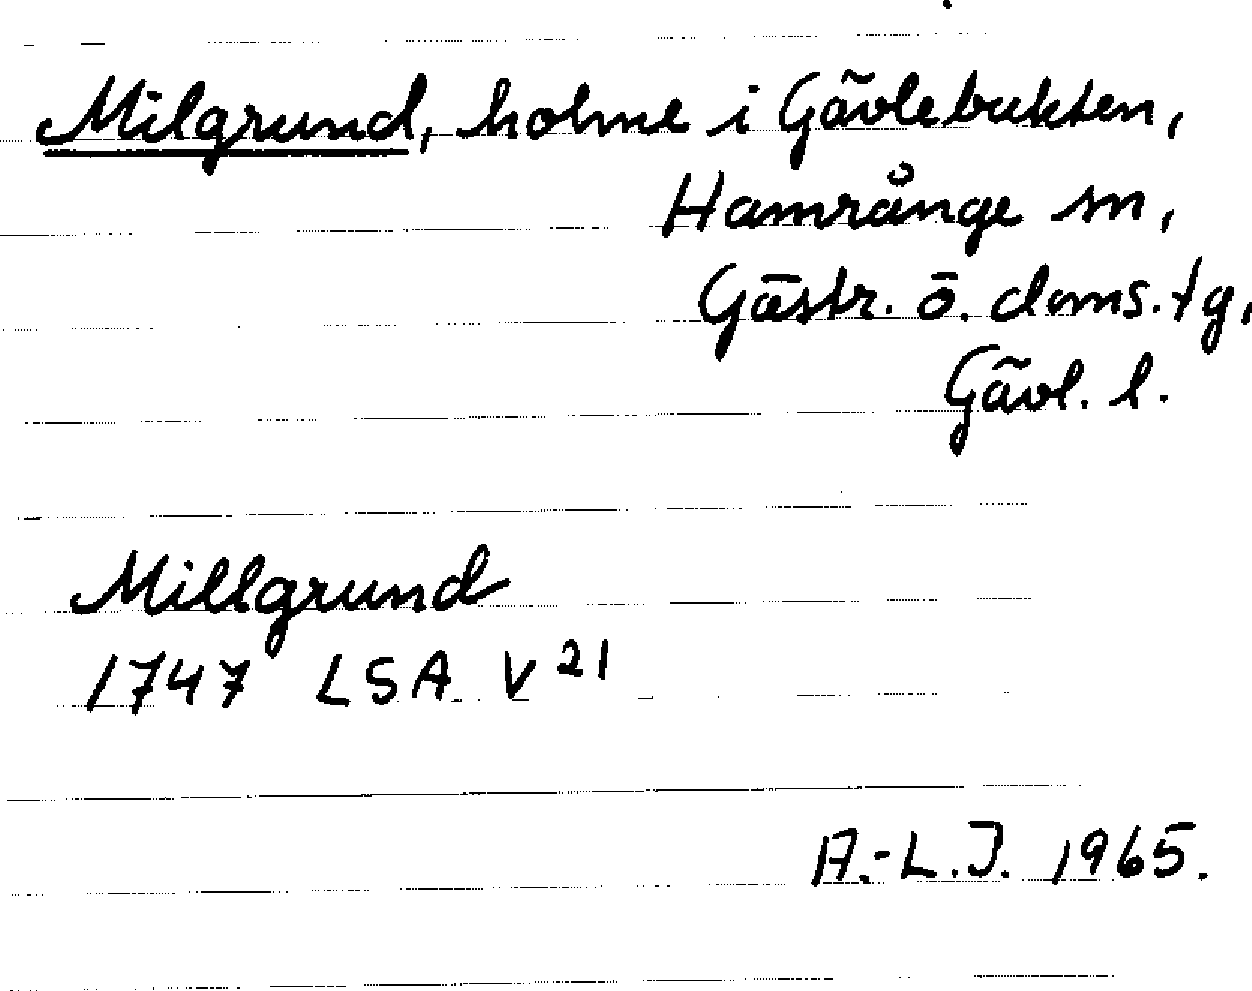 Milgrund, holme i Gävlebukten,
Hamrånge sn,
Gästr. ö. doms.tg,
Gävl. l.
Millgrund
1747 LSA V 21
A.-L.J. 1965.